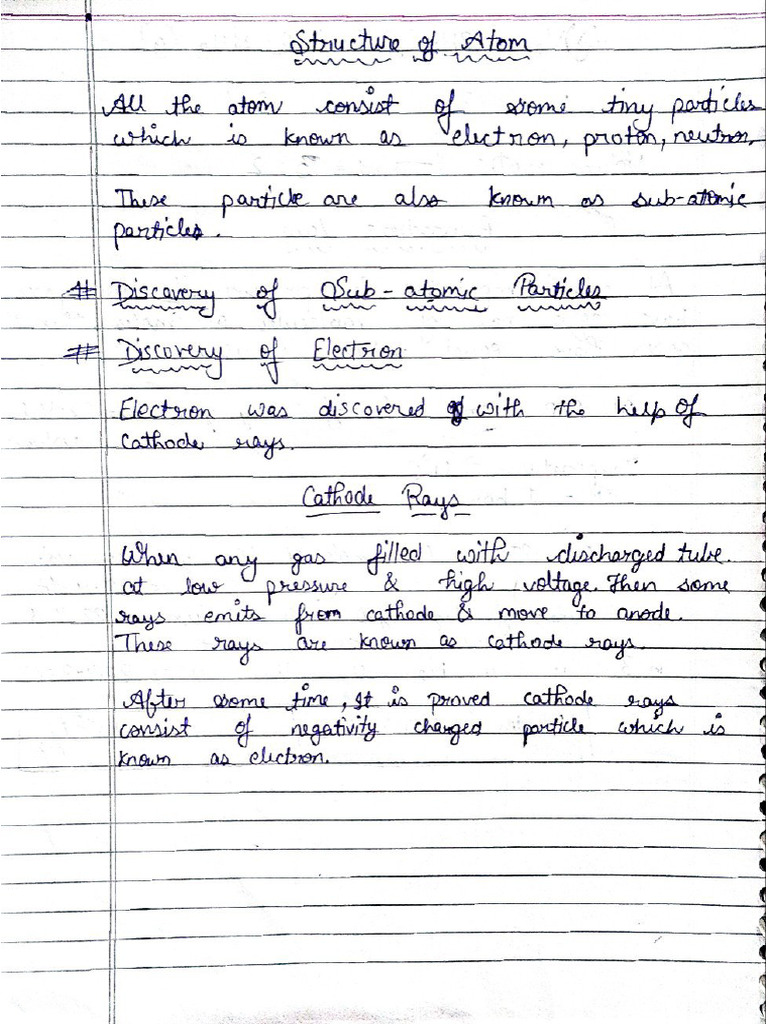 Structure of Atom
All the atom consist of some tiny particles
which is known as electron, proton, neutron,
These particle are also known as sub-atomic
particles.
# Discovery of Sub-atomic Particles
# Discovery of Electron
Electron was discovered with the help of
cathode rays.
Cathode Rays
When any gas filled with discharged tube.
at low pressure & high voltage. Then some
rays emits from cathode & move to anode.
These rays are known as cathode rays.
After some time, It is proved cathode rays
consist of negativity charged particle which is
known as electron.